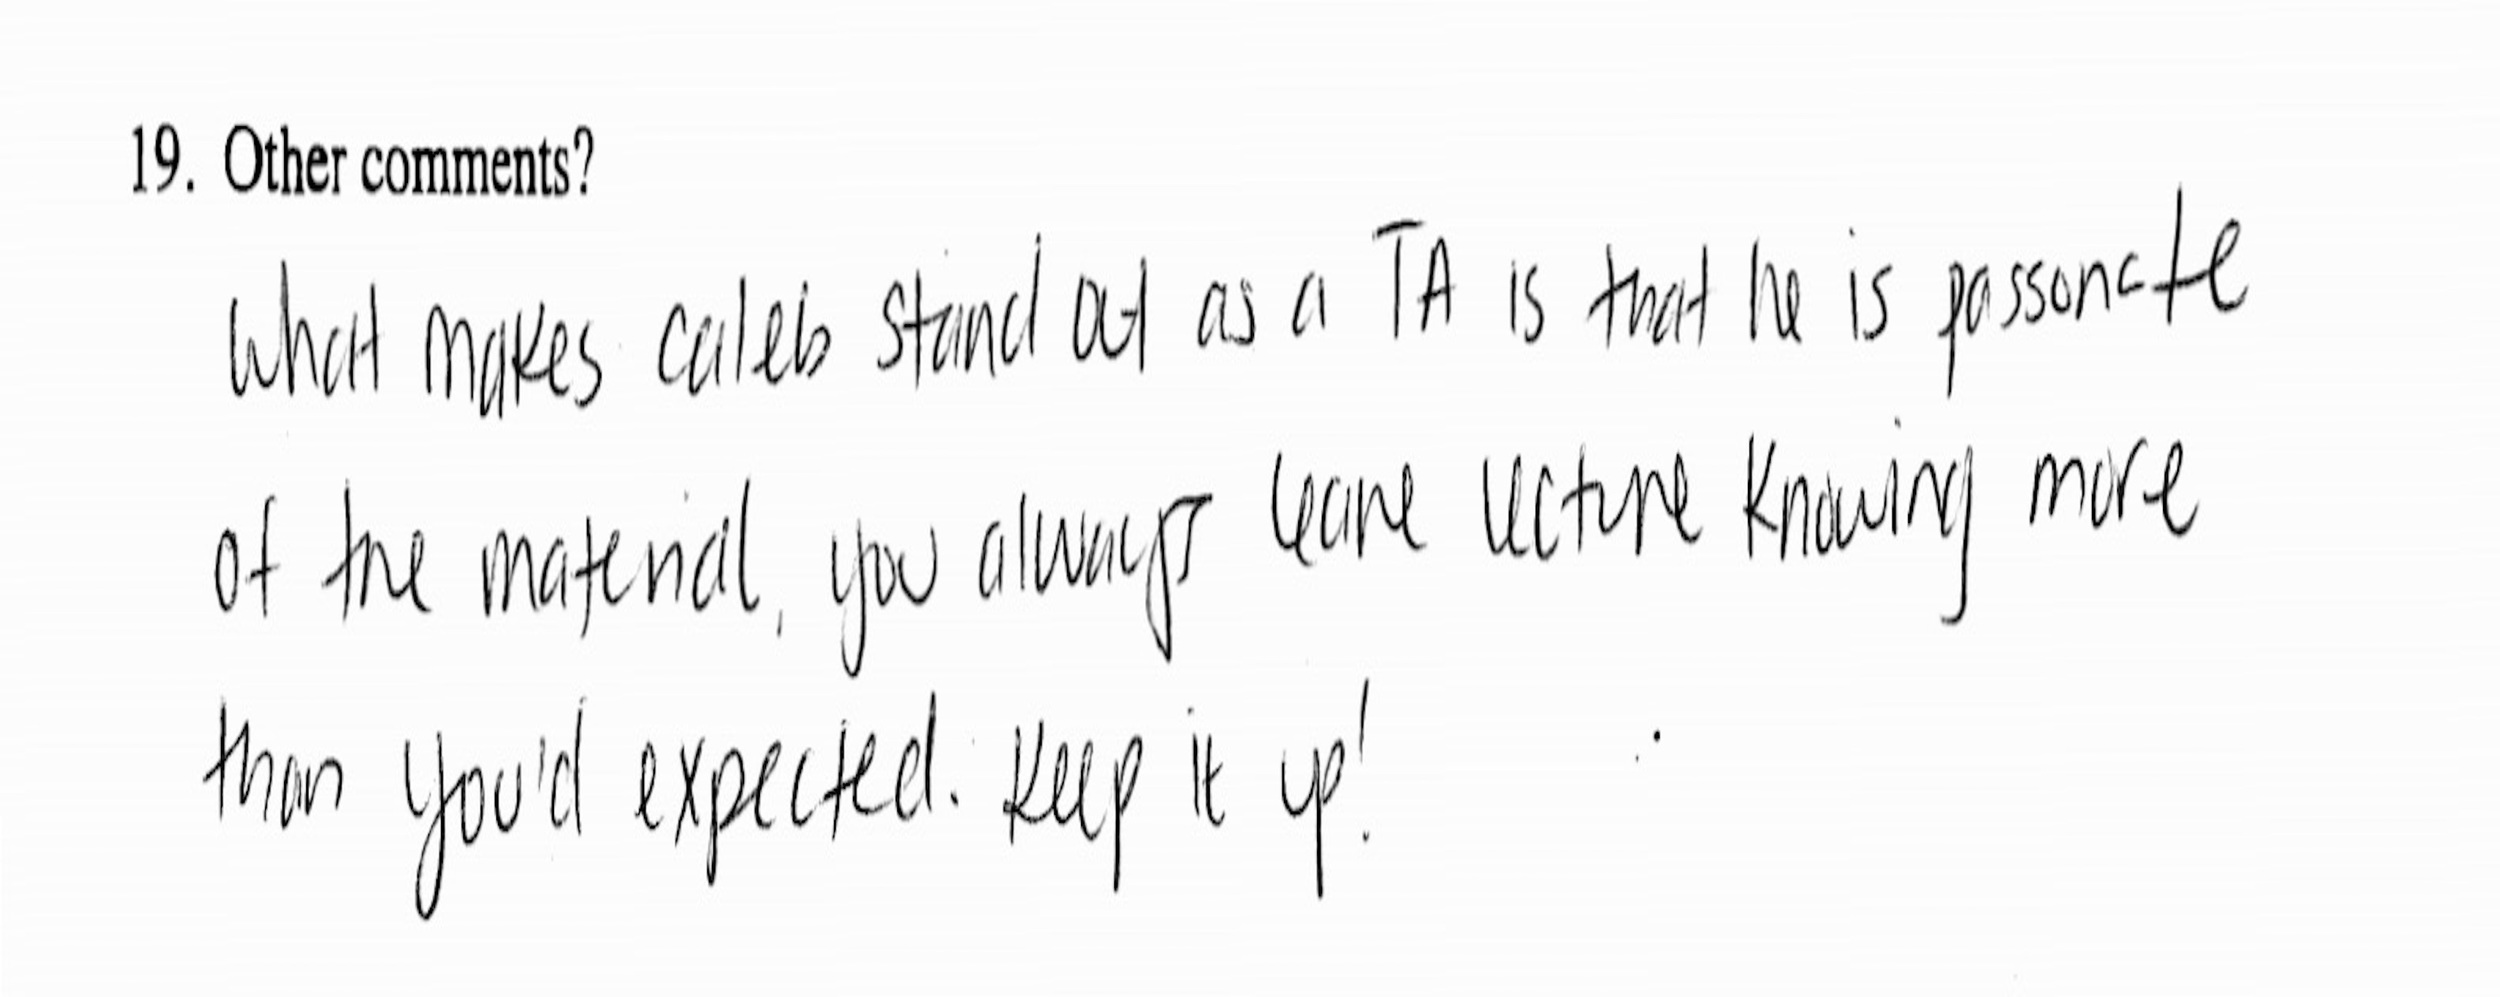 19. Other comments?
What makes caleb stand out as a TA is that he is passonate
of the material, you always leave lecture knowing more
than you'd expected. Keep it up!